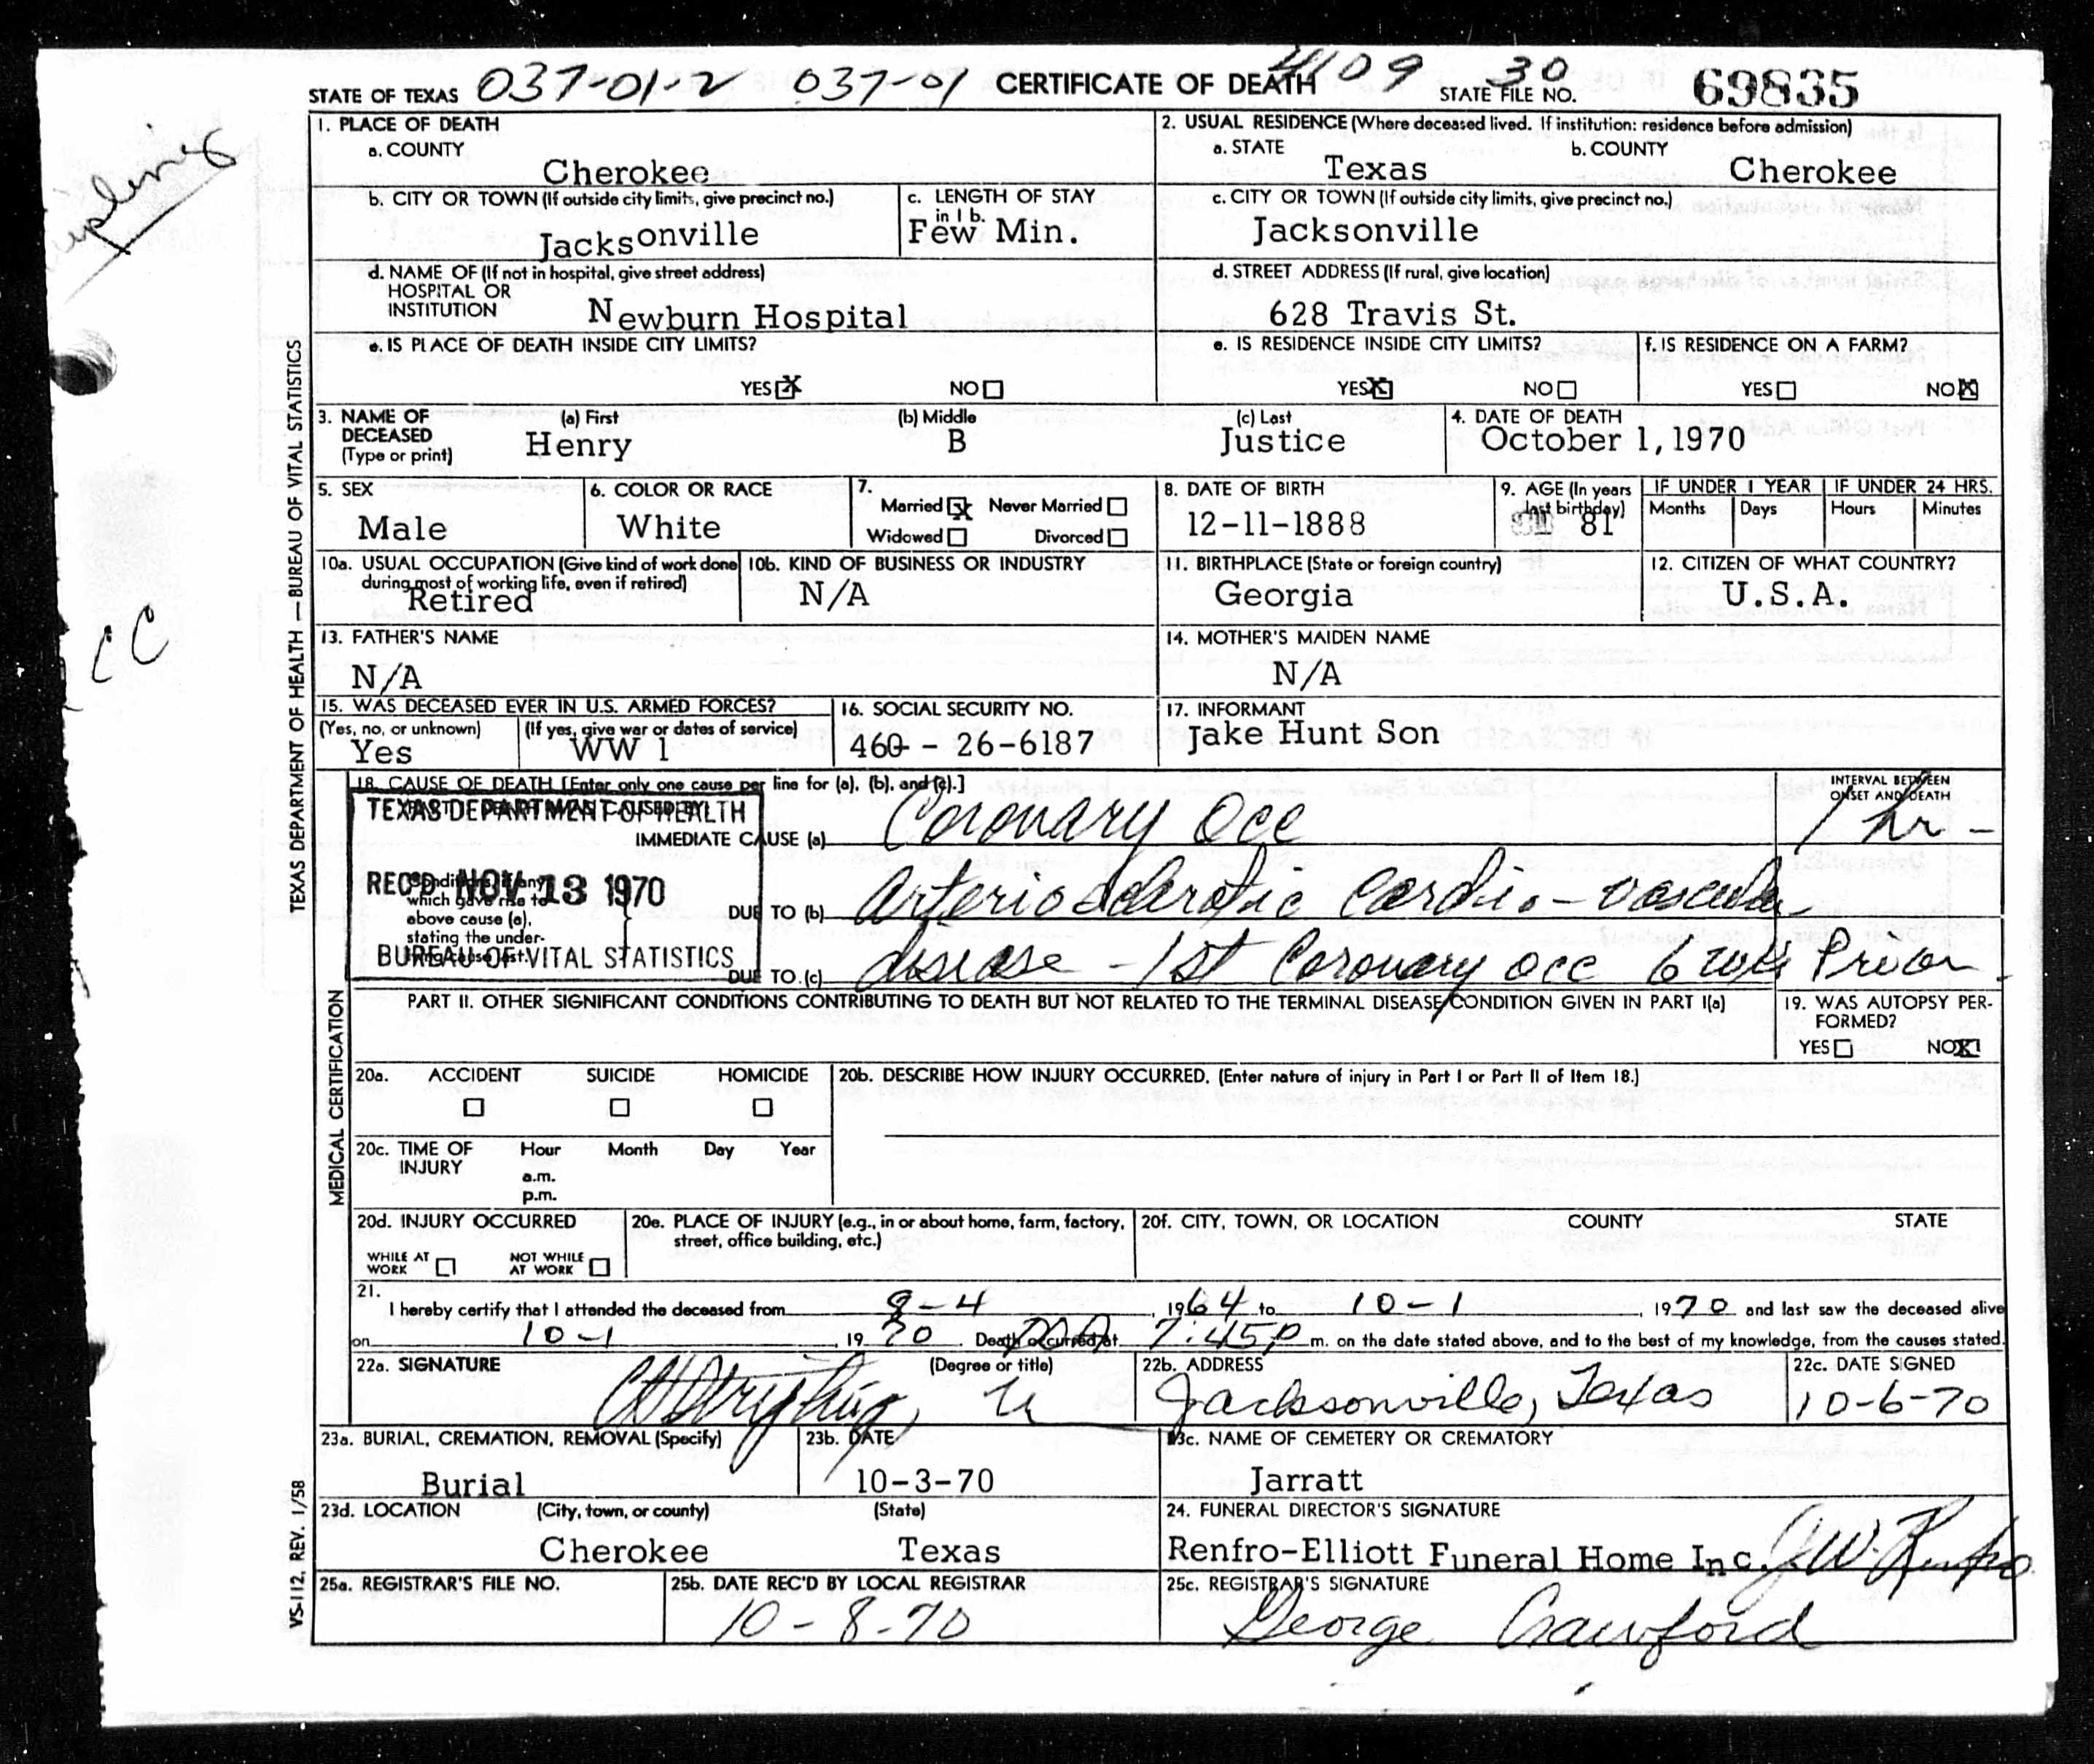 STATE OF TEXAS 037-01-2 037-01 CERTIFICATE OF DEATH 4109 30 STATE FILE NO. 69835
1. PLACE OF DEATH
a. COUNTY
Cherokee
2. USUAL RESIDENCE (Where deceased lived. If institution: residence before admission)
a. STATE b. COUNTY
Texas Cherokee
b. CITY OR TOWN (If outside city limits, give precinct no.)
Jacksonville
c. LENGTH OF STAY
in 1 b.
Few Min.
c. CITY OR TOWN (If outside city limits, give precinct no.)
Jacksonville
d. NAME OF (If not in hospital, give street address)
HOSPITAL OR
INSTITUTION Newburn Hospital
d. STREET ADDRESS (If rural, give location)
628 Travis St.
e. IS PLACE OF DEATH INSIDE CITY LIMITS?
YES X NO
e. IS RESIDENCE INSIDE CITY LIMITS?
YES X NO
f. IS RESIDENCE ON A FARM?
YES NO X
3. NAME OF DECEASED (Type or print)
(a) First (b) Middle (c) Last
Henry B Justice
4. DATE OF DEATH
October 1, 1970
5. SEX
Male
6. COLOR OR RACE
White
7.
Married X Never Married
Widowed Divorced
8. DATE OF BIRTH
12-11-1888
9. AGE (In years
last birthday)
81
IF UNDER 1 YEAR IF UNDER 24 HRS.
Months Days Hours Minutes
10a. USUAL OCCUPATION (Give kind of work done
during most of working life, even if retired)
Retired
10b. KIND OF BUSINESS OR INDUSTRY
N/A
11. BIRTHPLACE (State or foreign country)
Georgia
12. CITIZEN OF WHAT COUNTRY?
U.S.A.
13. FATHER'S NAME
N/A
14. MOTHER'S MAIDEN NAME
N/A
15. WAS DECEASED EVER IN U.S. ARMED FORCES?
(Yes, no, or unknown) (If yes, give war or dates of service)
Yes WW 1
16. SOCIAL SECURITY NO.
460 - 26-6187
17. INFORMANT
Jake Hunt Son
18. CAUSE OF DEATH [Enter only one cause per line for (a), (b), and (c).]
INTERVAL BETWEEN
ONSET AND DEATH
TEXAS DEPARTMENT OF HEALTH
REC'D NOV 13 1970
BUREAU OF VITAL STATISTICS
IMMEDIATE CAUSE (a) Coronary Occ 1 hr -
which gave rise to
above cause (a),
stating the under-
DUE TO (b) Arteriosclerotic Cardio-vascular
DUE TO (c) disease - 1st Coronary occ 6 wks Prior
PART II. OTHER SIGNIFICANT CONDITIONS CONTRIBUTING TO DEATH BUT NOT RELATED TO THE TERMINAL DISEASE CONDITION GIVEN IN PART I(a)
19. WAS AUTOPSY PER-
FORMED?
YES NO X
20a. ACCIDENT SUICIDE HOMICIDE
20b. DESCRIBE HOW INJURY OCCURRED. (Enter nature of injury in Part I or Part II of Item 18.)
20c. TIME OF INJURY
Hour Month Day Year
a.m.
p.m.
20d. INJURY OCCURRED
WHILE AT WORK NOT WHILE AT WORK
20e. PLACE OF INJURY (e.g., in or about home, farm, factory,
street, office building, etc.)
20f. CITY, TOWN, OR LOCATION COUNTY STATE
21.
I hereby certify that I attended the deceased from 9-4, 1964 to 10-1, 1970 and last saw the deceased alive
on 10-1, 1970. Death occurred at 7:45 p m. on the date stated above, and to the best of my knowledge, from the causes stated.
22a. SIGNATURE (Degree or title)
22b. ADDRESS
Jacksonville, Texas
22c. DATE SIGNED
10-6-70
23a. BURIAL, CREMATION, REMOVAL (Specify)
Burial
23b. DATE
10-3-70
23c. NAME OF CEMETERY OR CREMATORY
Jarratt
23d. LOCATION (City, town, or county) (State)
Cherokee Texas
24. FUNERAL DIRECTOR'S SIGNATURE
Renfro-Elliott Funeral Home Inc. J.W. Renfro
25a. REGISTRAR'S FILE NO.
25b. DATE REC'D BY LOCAL REGISTRAR
10-8-70
25c. REGISTRAR'S SIGNATURE
George Crawford
TEXAS DEPARTMENT OF HEALTH — BUREAU OF VITAL STATISTICS
MEDICAL CERTIFICATION
VS-112, REV. 1/58
CC